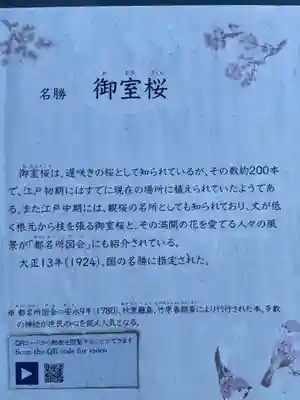 名勝 御室桜
御室桜は、遅咲きの桜として知られているが、その数約200本
で、江戸初期にはすでに現在の場所に植えられていたようであ
る。また江戸中期には、観桜の名所としても知られており、丈が低
く根元から枝を張る御室桜と、その満開の花を愛でる人々の風
景が「都名所図会」にも紹介されている。
大正13年(1924)、国の名勝に指定された。
※ 都名所図会…安永9年(1780)、秋里籬島、竹原春朝斎により刊行された本。多数
の挿絵が庶民の心を捉え人気となる。
QRコードから動画を閲覧することができます
Scan the QR code for video